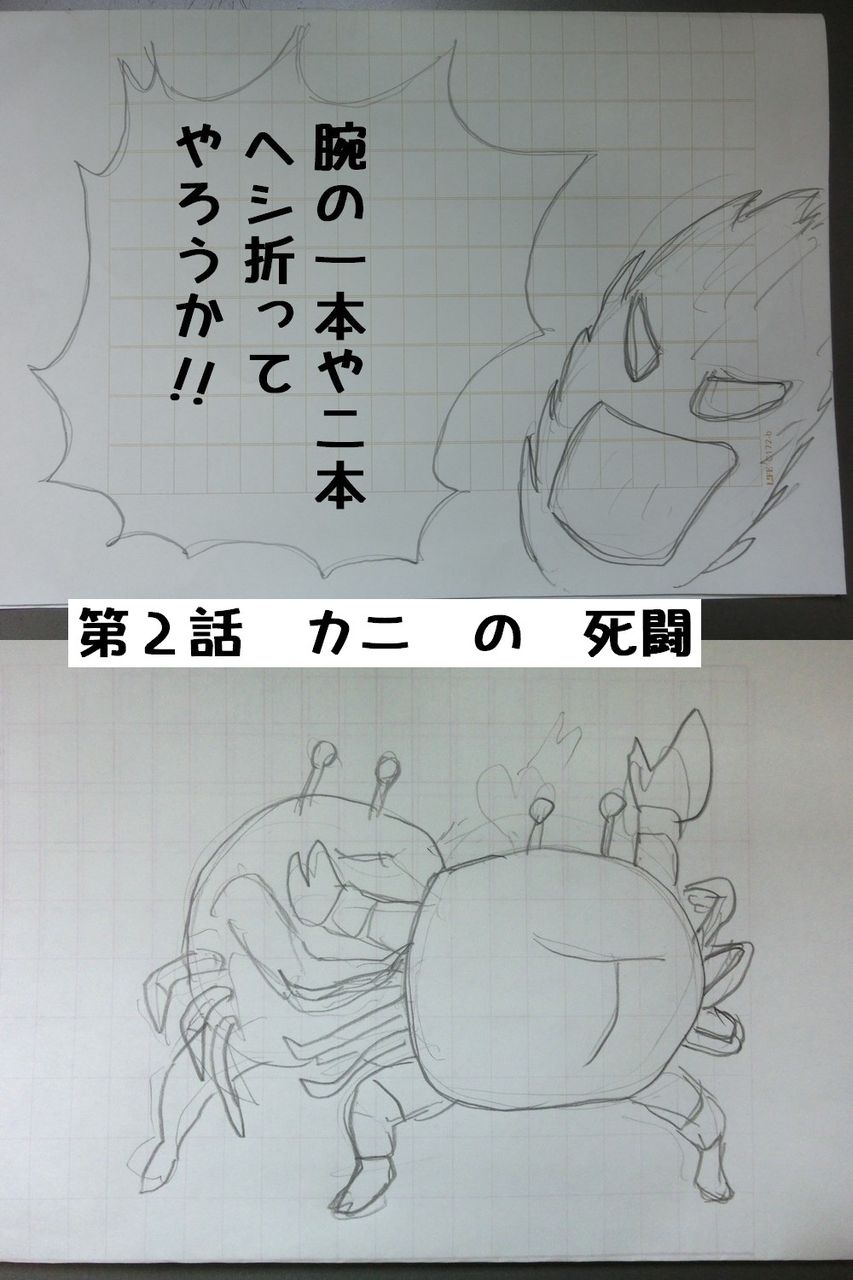 腕の一本や二本
ヘシ折って
やろうか!!
LIFE C172-b
第２話　カニ　の　死闘